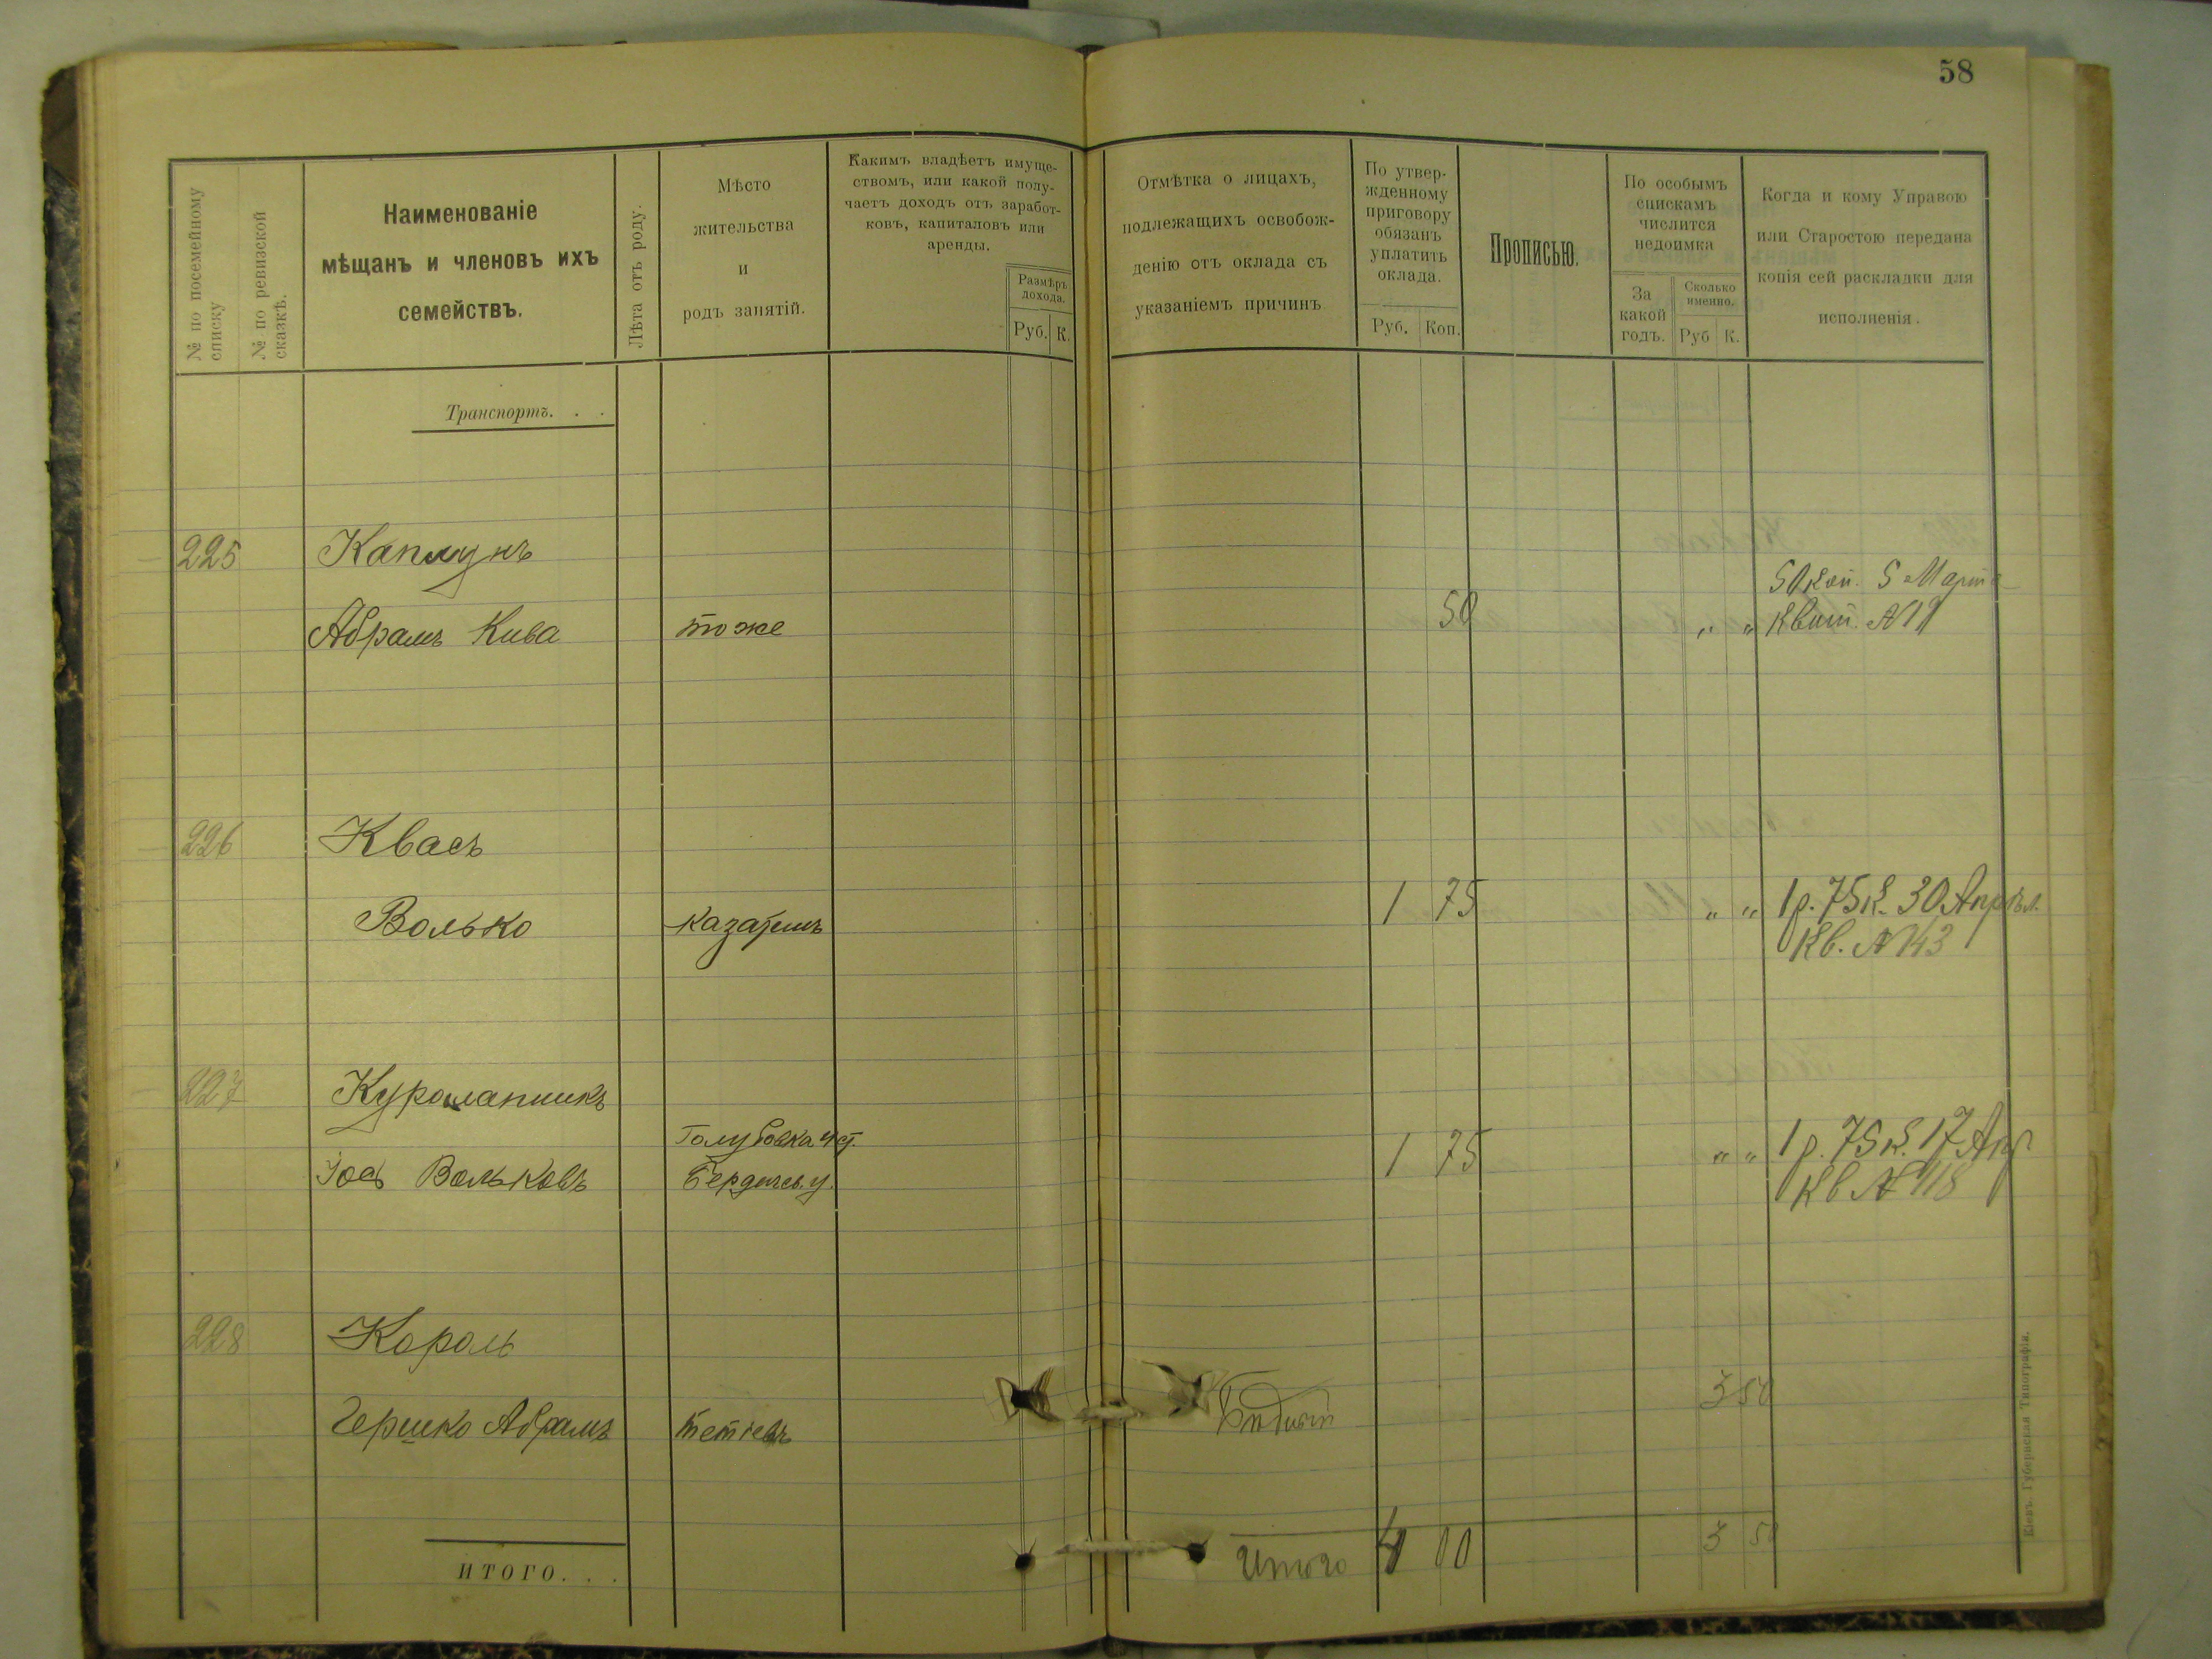 58
№ по посемейному списку
№ по ревизской сказкѣ.
Наименованіе
мѣщанъ и членовъ ихъ
семействъ.
Лѣта отъ роду.
Мѣсто
жительства
и
родъ занятій.
Какимъ владѣетъ имуще-
ствомъ, или какой полу-
чаетъ доходъ отъ заработ-
ковъ, капиталовъ или
аренды.
Размѣръ
дохода.
Руб. К.
Отмѣтка о лицахъ,
подлежащихъ освобож-
денію отъ оклада съ
указаніемъ причинъ
По утвер-
жденному
приговору
обязанъ
уплатить
оклада.
Руб. Коп.
Прописью.
По особымъ
спискамъ
числится
недоимка
За
какой
годъ.
Сколько
именно.
Руб К.
Когда и кому Управою
или Старостою передана
копія сей раскладки для
исполненія.
Транспортъ. . .
225 Каплунъ
50 коп. 5 Марта
Абрамъ Кива тоже 50 " " Квит. №19
226 Квасъ
Волько 1 75 " " 1 р. 75 к. 30 Апрѣл.
Кв. № 143
227 Куролапникъ
Голубовка 4 ст.
Іось Вольковъ Бердичев. у. 1 75 " " 1 р. 75 к. 17 Апр
Кв № 118
228 Король
3 50
Гершко Абрамъ Тетіевъ
ИТОГО. . .
Итого 4 00 3 50
Кіевъ. Губернская Типографія.